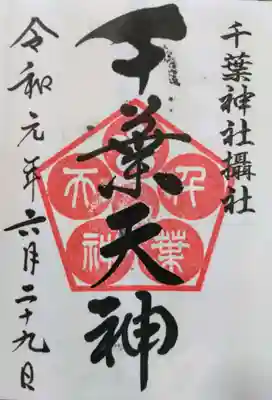 千葉神社攝社
千葉天神
千葉天神社
令和元年六月二十九日